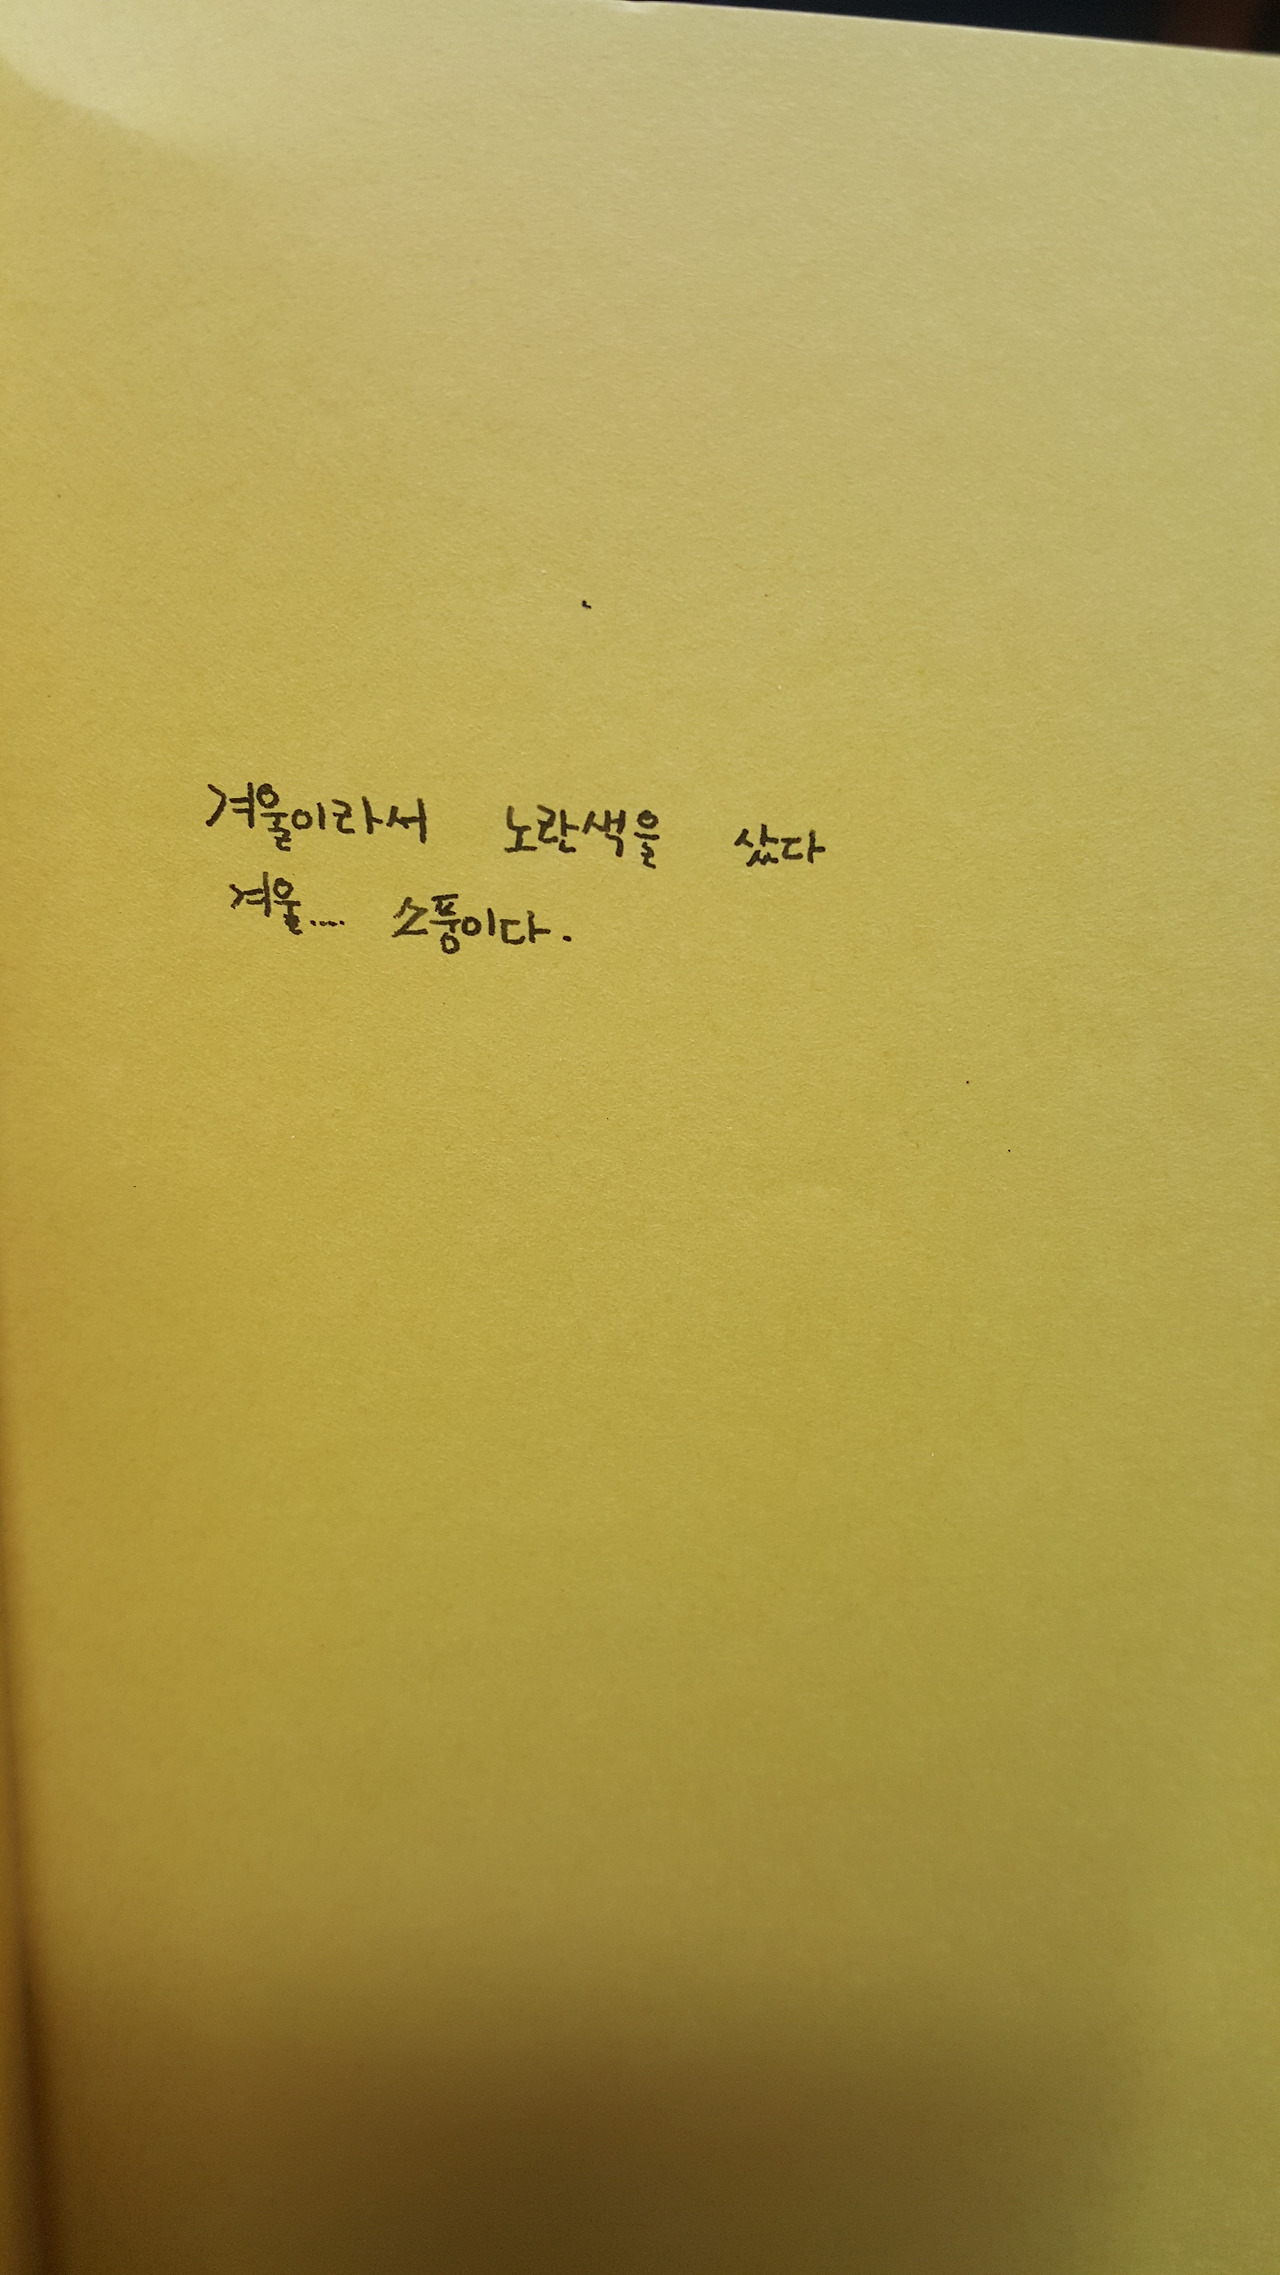 겨울이라서 노란색을 샀다
겨울.... 소풍이다.